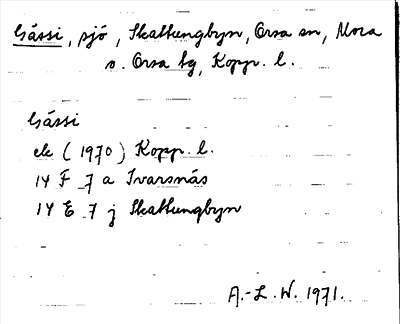 Gässi, sjö, Skattungbyn, Orsa sn, Mora
o. Orsa tg, Kopp. l.
Gässi
ek (1970) Kopp. l.
14 F 7 a Ivarsnäs
14 E 7 j Skattungbyn
A.-L. W. 1971.